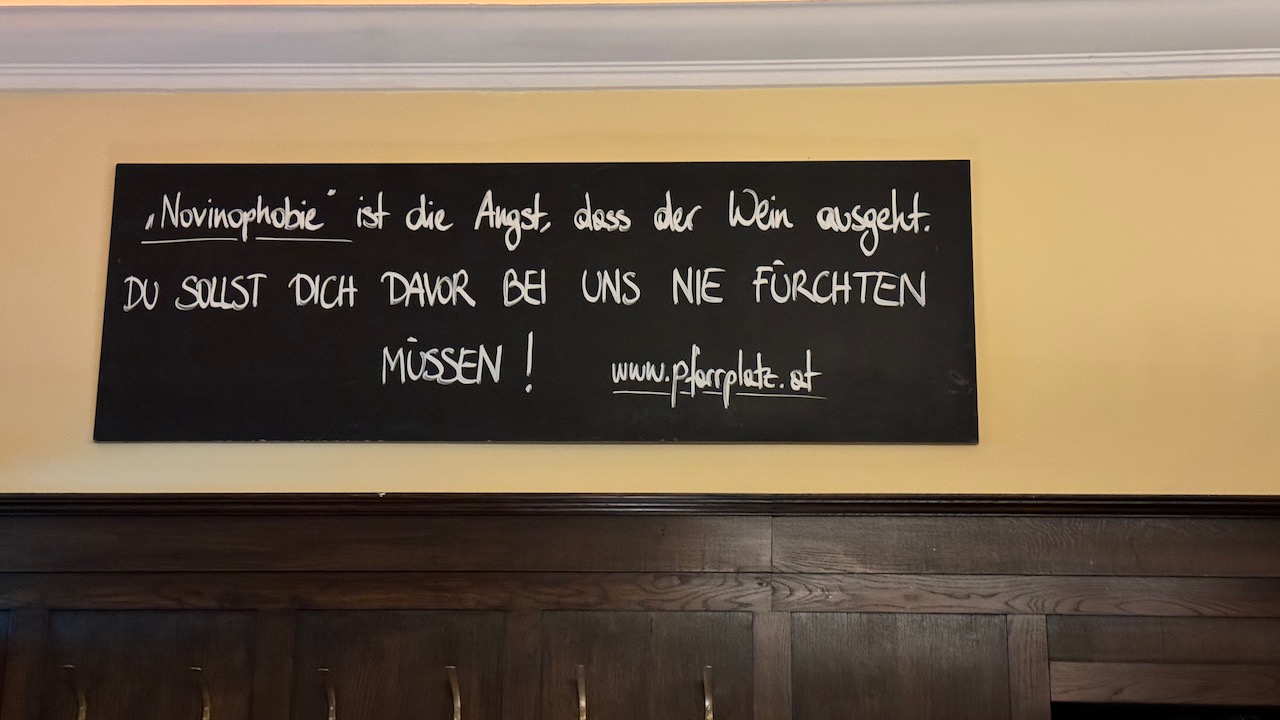 „Novinophobie“ ist die Angst, dass der Wein ausgeht.
DU SOLLST DICH DAVOR BEI UNS NIE FÜRCHTEN
MÜSSEN! www.pfarrplatz.at